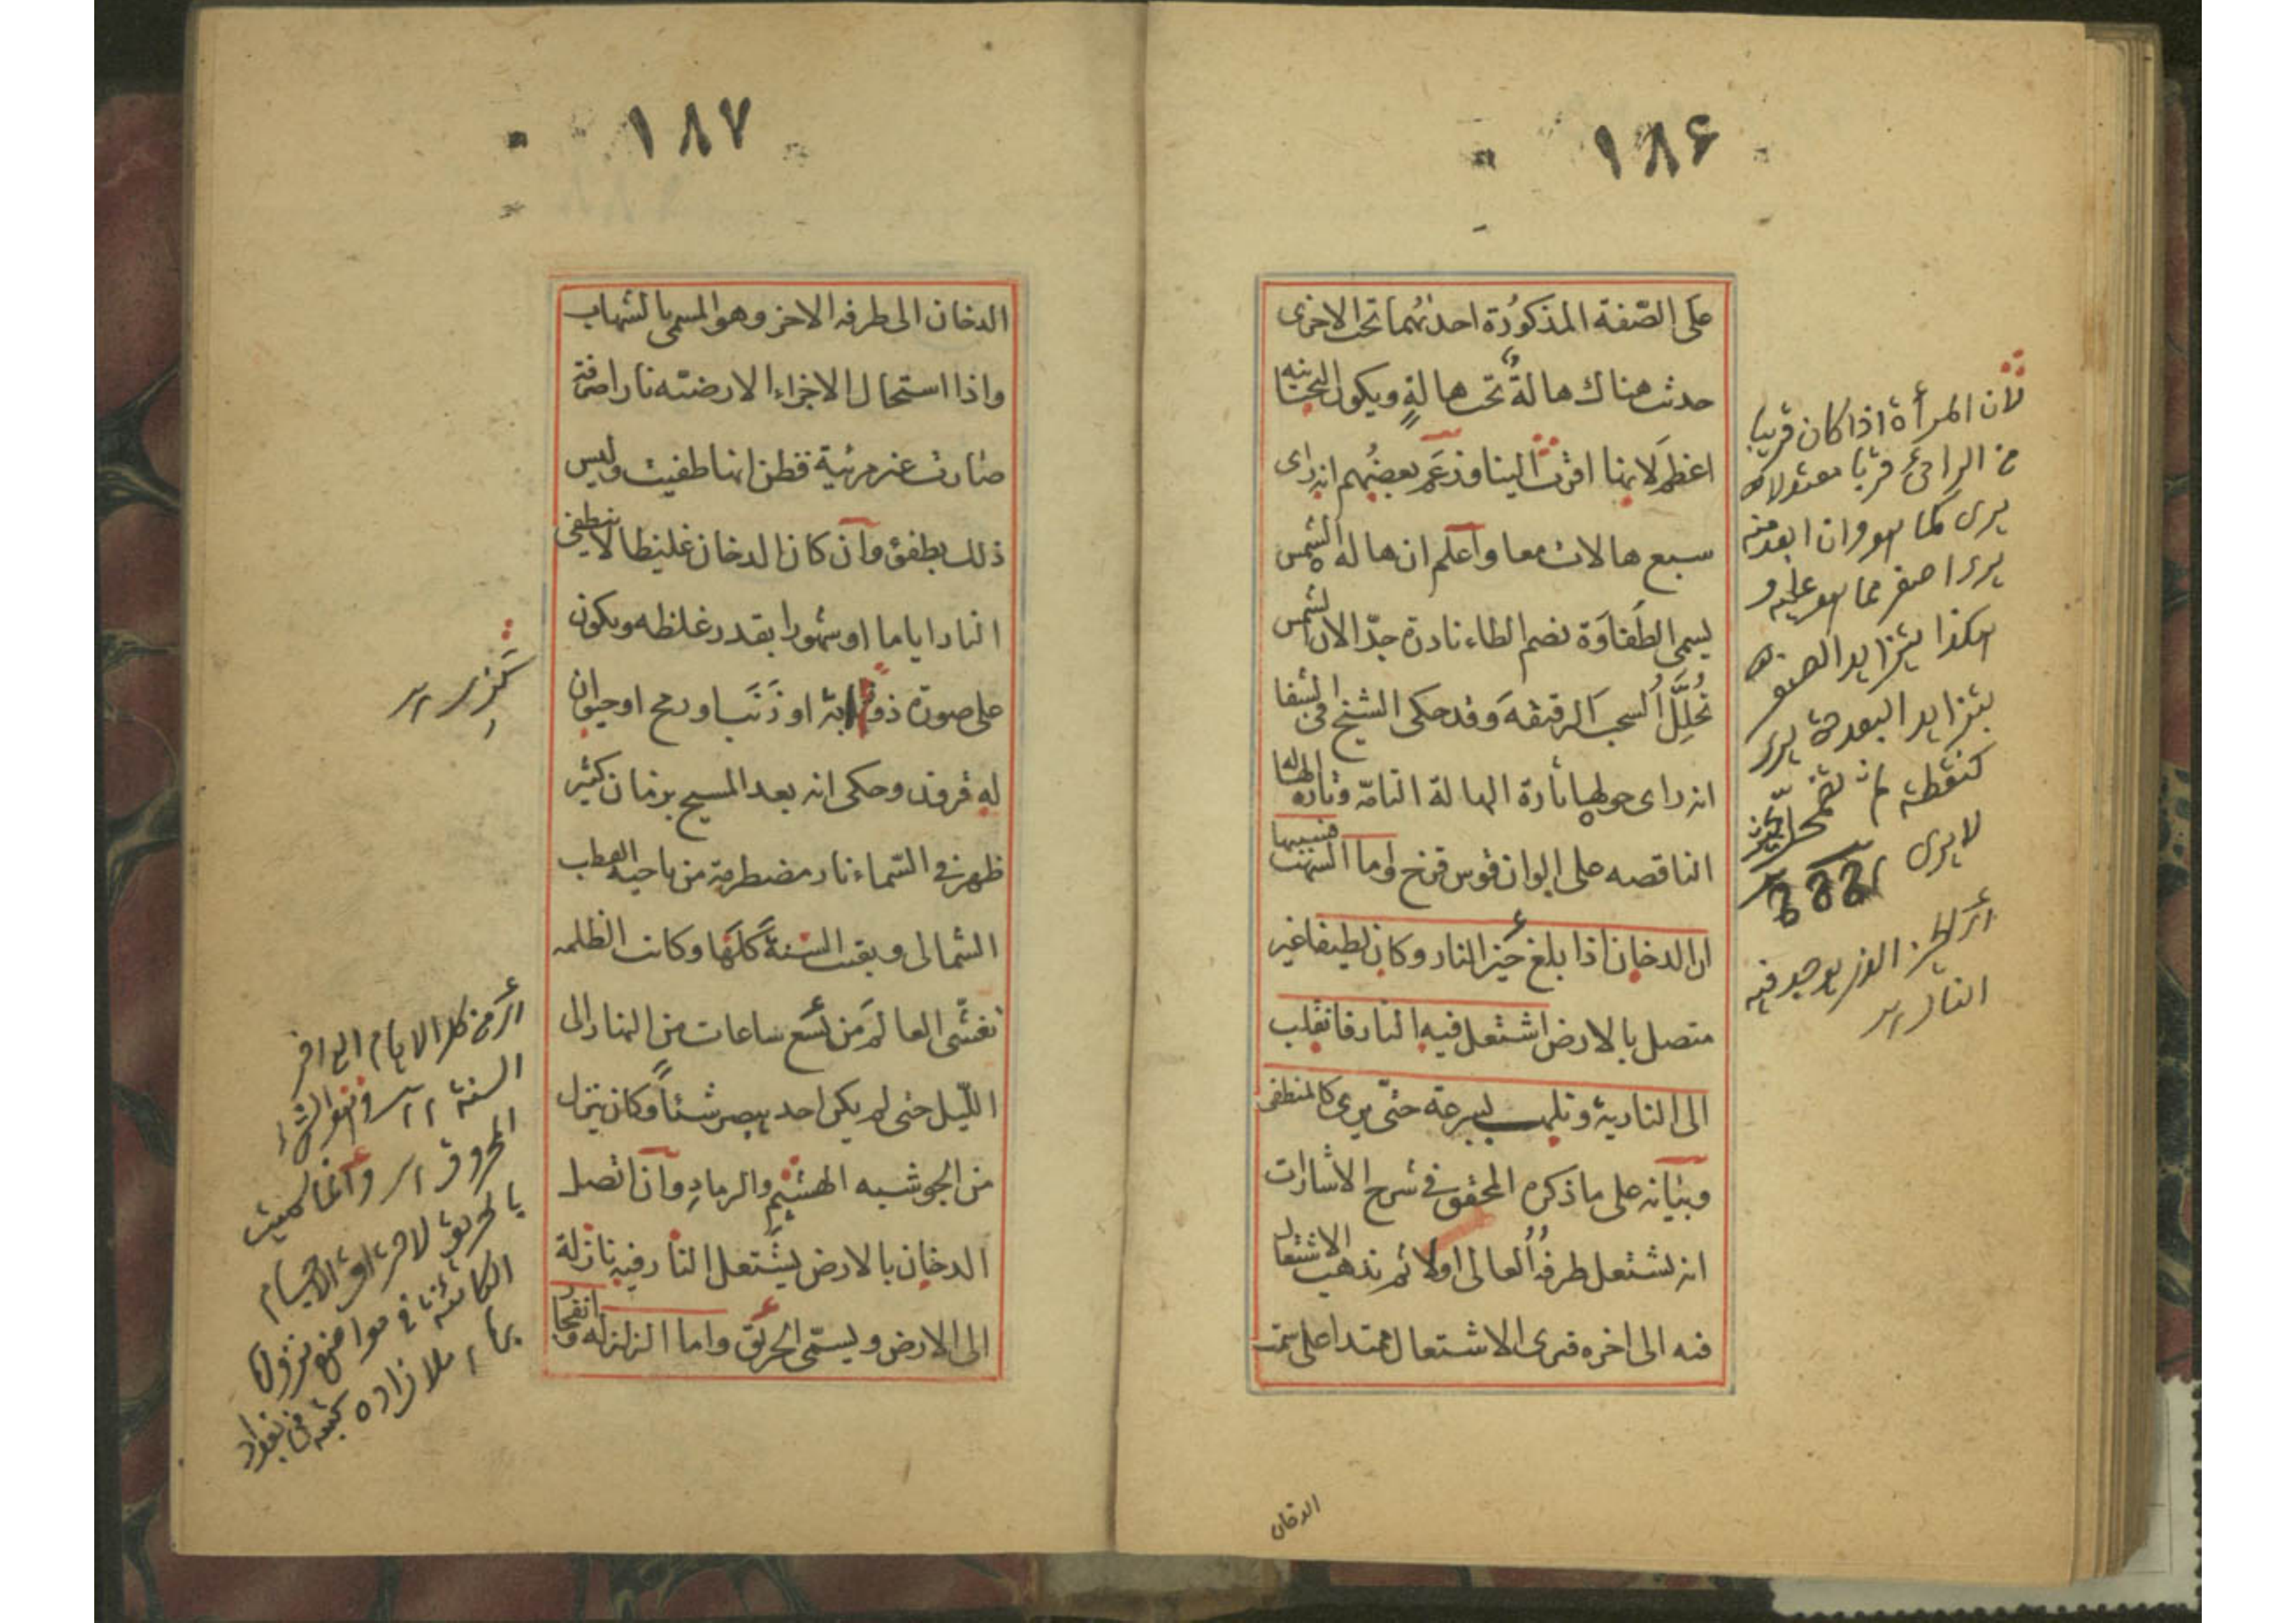 ١٨۶
على الصّفة المذكورة احدىهما تحت الاخرى
حدث هناك هالةٌ تحت هالةٍ ويكون التحتانيه
اعظم لانها اقرب الينا وزعم بعضهم انه راى
سبع هالات معا واعلم ان هالة الشمس
يسمى الطفاوة بضم الطاء نادرة جدّا لان الشمس
تُحلِّلُ السحبَ الرقيقةَ وقد حكى الشيخ فى الشفا
انه راى حولها تارة الهالة التامّة وتارة الهالة
الناقصه على الوان قوس قزح واما الشهب فسببها
ان الدخان اذا بلغ حيز النار وكان لطيفا غير
متصل بالارض اشتعل فيه النار فانقلب
الى النارية وتلهب بسرعة حتّى يرى كالمنطفى
وبيانه على ما ذكره المحقق فى شرح الاشارات
انه يشتعل طرفُهُ العالى اولا ثم يذهب الاشتعال
فيه الى اخره فترى الاشتعال ممتدا على سمت
لان المرأة اذا كان قريبا
من الرائى قربا معتدلا
يرى كما هو وان ابعد منه
يرى اصغر مما هو عليه و
هكذا يتزايد الصغر
بتزايد البعد حتى يرى
كنقطة ثم تضمحل بحيث
لا يرى
اى الحيز الذى يوجد فيه
النار
الدخان
١٨٧
الدخان الى طرفه الاخر وهو المسمى بالشهاب
واذا استحال الاجزاء الارضيّه نارا صرفة
صارت غير مرئية فظن انها طفيت وليس
ذلك بطفؤ وان كان الدخان غليظا لا ينطفى
النار اياما او شهورا بقدر غلظه ويكون
على صورة ذوابة او ذَنَب او رمح او حيوان
له قرون وحكى انه بعد المسيح بزمان كثير
ظهر فى السّماء نار مضطرمة من ناحية القطب
الشمالى وبقيت السنةَ كلَّها وكانت الظلمه
تغشّى العالم من تسع ساعات من النهار الى
الليل حتى لم يكن احد يبصر شيئاً وكان ينزل
من الجو شبيه الهشيم والرمادِ وان اتصل
الدخان بالارض يشتعل النار فيه نازلة
الى الارض ويسمّى الحريق واما الزلزلة وانفجا
اى من كل الايام الى اخر
السنة
المحروق وانما سميت
بالحريق لاحراق الاجسام
الكائنة فى مواضع نزول
بها ملا زاده